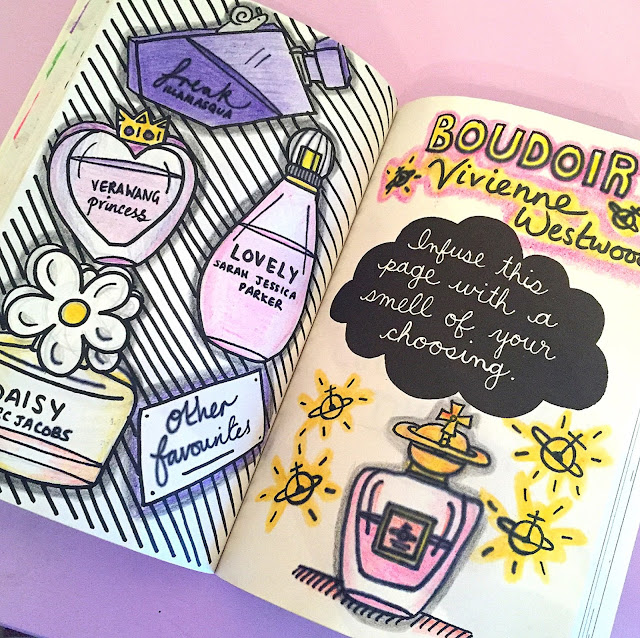 freak
ILLAMASQUA
VERAWANG
princess
LOVELY
SARAH JESSICA
PARKER
DAISY
MARC JACOBS
other
favourites
BOUDOIR
Vivienne
Westwood
Infuse this
page with a
smell of your
choosing.